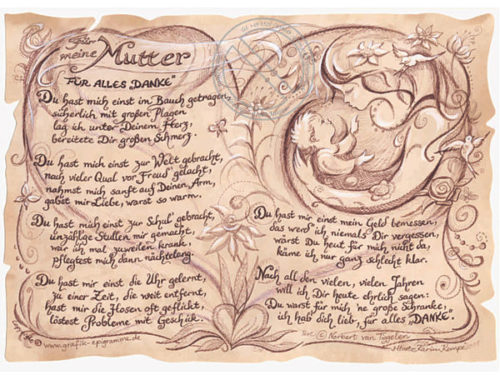 Für
meine Mutter
FÜR ALLES „DANKE“
Du hast mich einst im Bauch getragen,
sicherlich mit großen Plagen
lag ich unter Deinem Herz,
bereitete Dir großen Schmerz.
Du hast mich einst zur Welt gebracht,
nach vieler Qual vor Freud gelacht,
nahmst mich sanft auf Deinen Arm,
gabst mir Liebe, warst so warm.
Du hast mich einst zur Schul gebracht,
unzählge Stullen mir gemacht,
war ich mal zuweilen krank,
pflegtest mich dann nächtelang.
Du hast mir einst die Uhr gelernt,
zu einer Zeit, die weit entfernt,
hast mir die Hosen oft geflickt,
löstest Probleme mit Geschick.
Du hast mir einst mein Geld bemessen,
das werd ich niemals Dir vergessen,
wärst Du heut für mich nicht da,
käme ich nur ganz schlecht klar.
Nach all den vielen, vielen Jahren
will ich Dir heute ehrlich sagen:
Du warst für mich 'ne große Schranke,
ich hab dich lieb, für alles „DANKE“.
Text © Norbert van Tiggelen
© www.grafik-epigramme.de